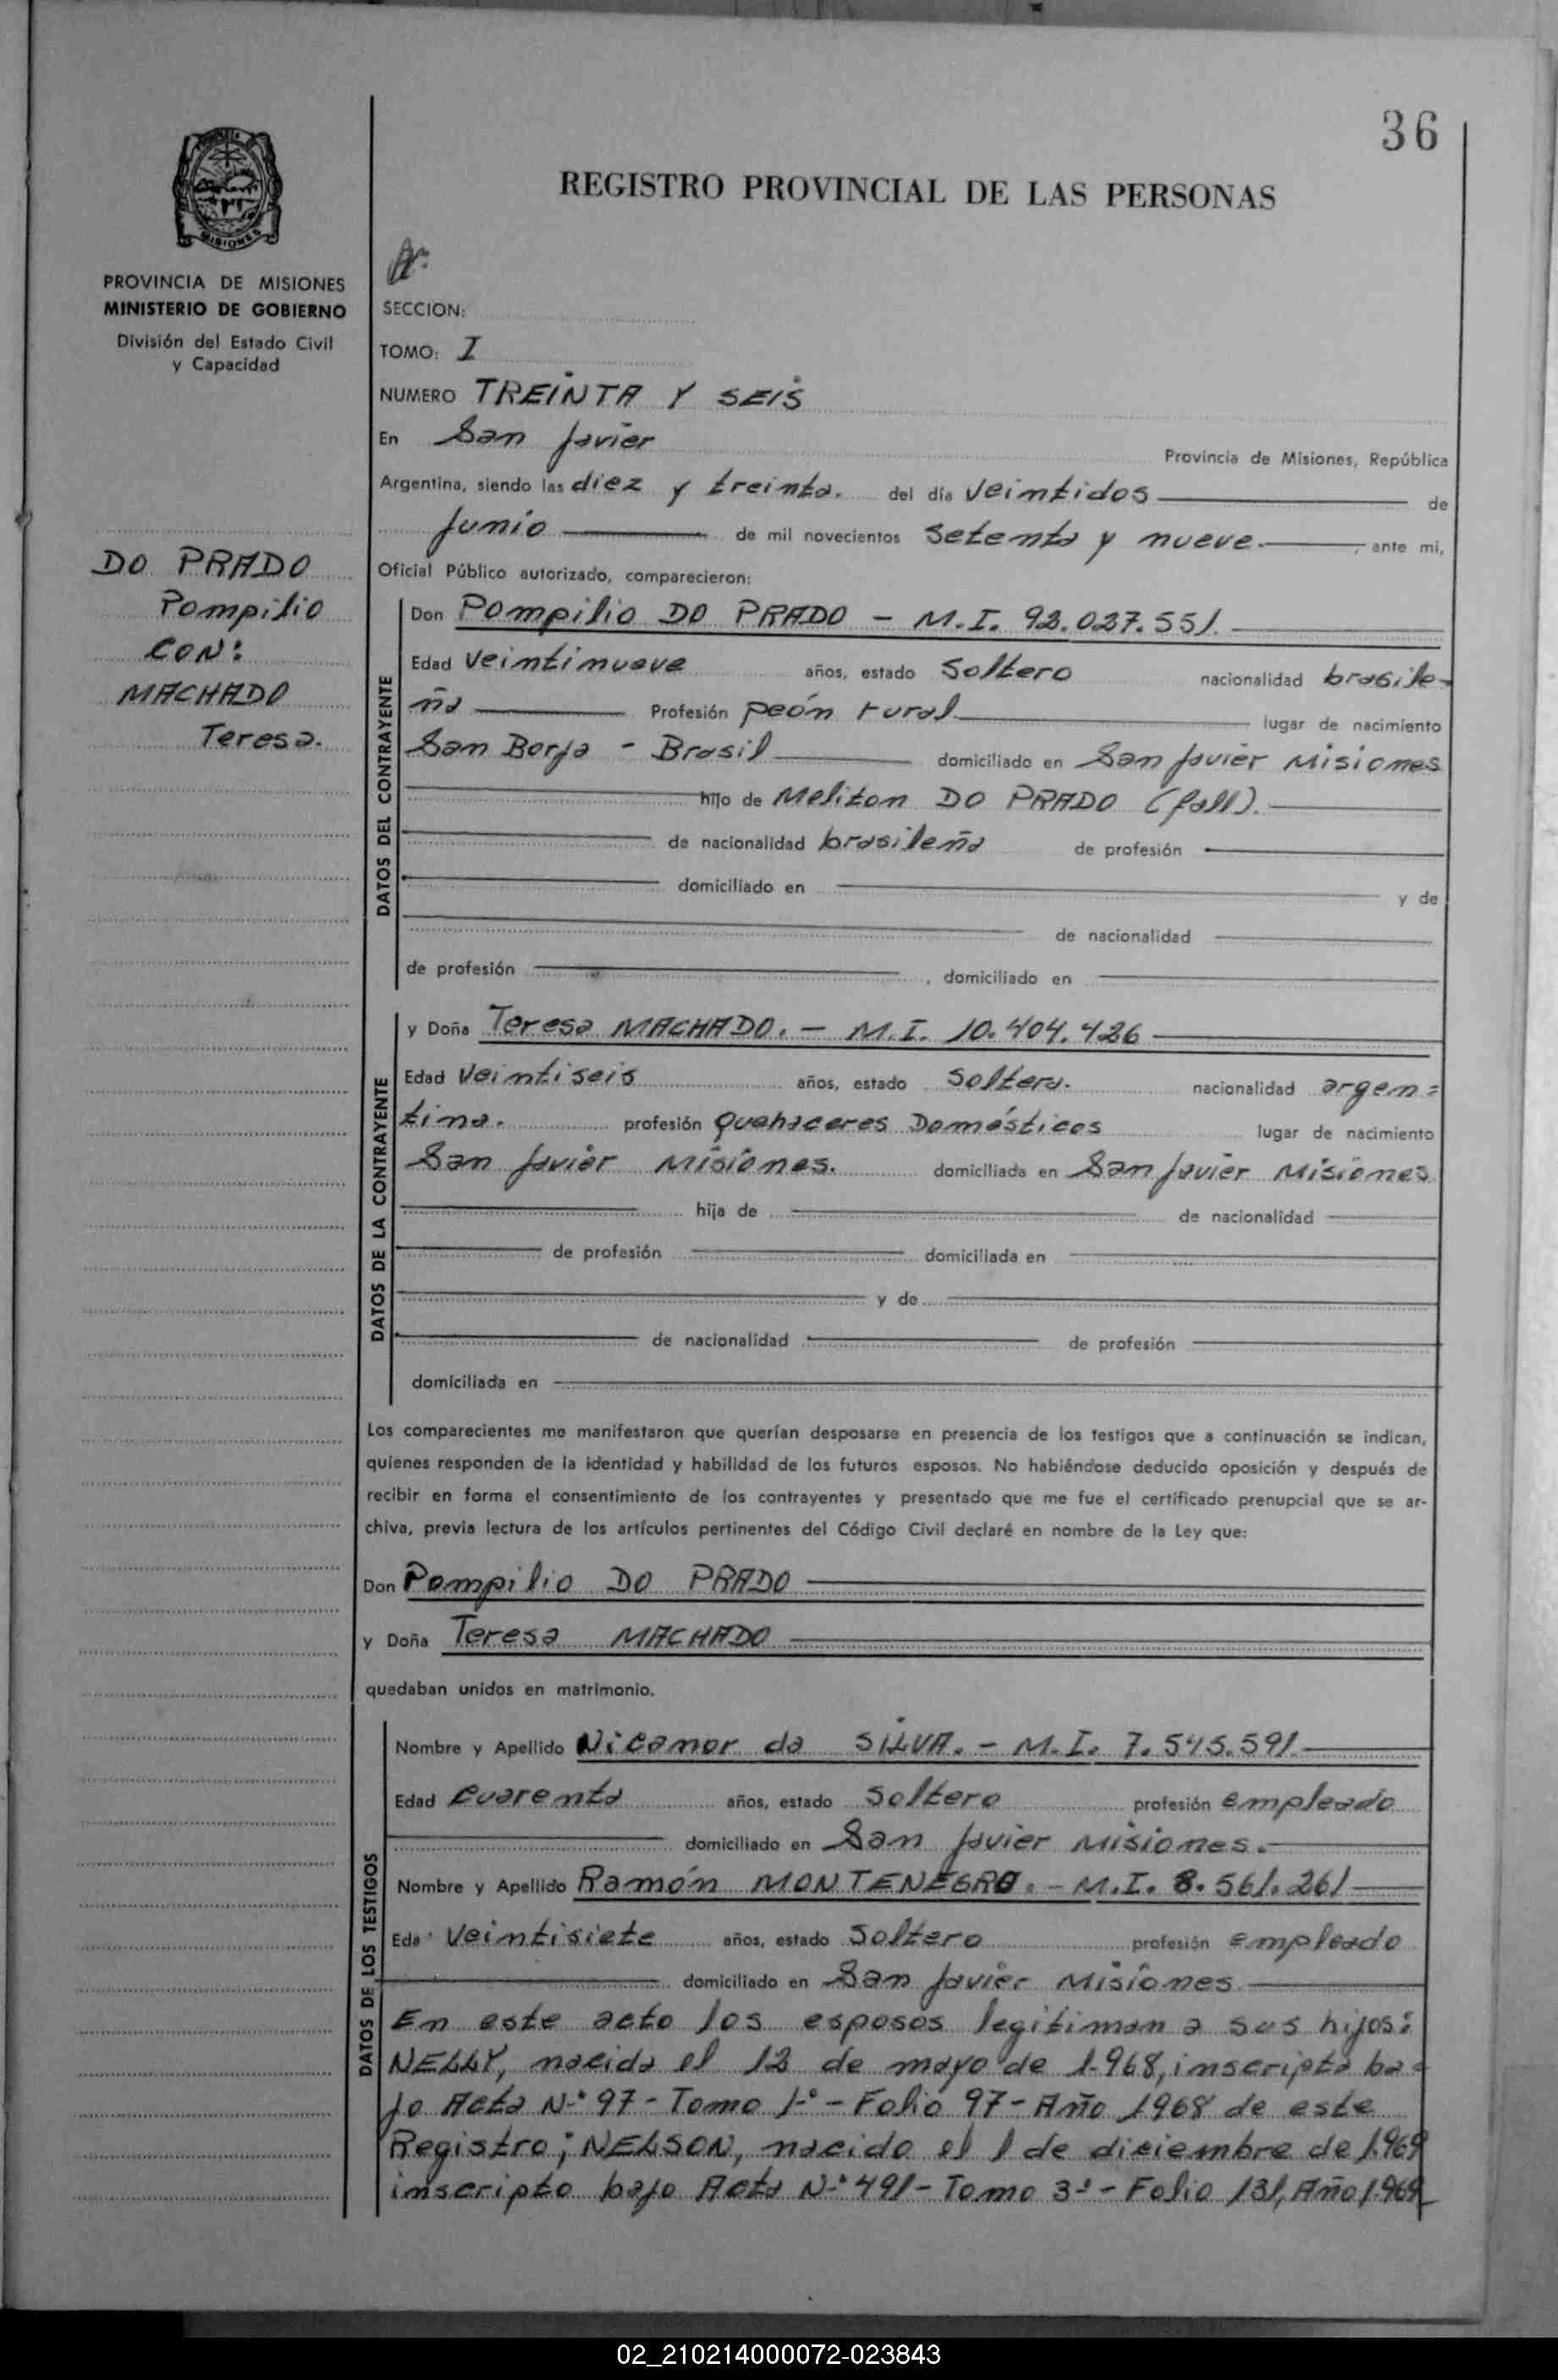 36
REGISTRO PROVINCIAL DE LAS PERSONAS
MISIONES
PROVINCIA DE MISIONES
MINISTERIO DE GOBIERNO
División del Estado Civil
y Capacidad
DO PRADO
Pompilio
CON:
MACHADO
Teresa.
SECCION:
TOMO: I
NUMERO TREINTA Y SEIS
En San Javier Provincia de Misiones, República
Argentina, siendo las diez y treinta. del día veintidos de
Junio de mil novecientos setenta y nueve. , ante mi,
Oficial Público autorizado, comparecieron:
DATOS DEL CONTRAYENTE
Don Pompilio DO PRADO - M.I. 92.027.551.
Edad veintinueve años, estado soltero nacionalidad brasile-
ña Profesión peón rural lugar de nacimiento
San Borja - Brasil domiciliado en San Javier Misiones
hijo de Meliton DO PRADO (fall).
de nacionalidad brasileña de profesión
domiciliado en y de
de nacionalidad
de profesión , domiciliado en
DATOS DE LA CONTRAYENTE
y Doña Teresa MACHADO. - M.I. 10.404.426
Edad veintiseis años, estado soltera. nacionalidad argen=
tina. profesión Quehaceres Domésticos lugar de nacimiento
San Javier Misiones. domiciliada en San Javier Misiones
hija de de nacionalidad
de profesión domiciliada en
y de
de nacionalidad de profesión
domiciliada en
Los comparecientes me manifestaron que querían desposarse en presencia de los testigos que a continuación se indican,
quienes responden de la identidad y habilidad de los futuros esposos. No habiéndose deducido oposición y después de
recibir en forma el consentimiento de los contrayentes y presentado que me fue el certificado prenupcial que se ar-
chiva, previa lectura de los artículos pertinentes del Código Civil declaré en nombre de la Ley que:
Don Pompilio DO PRADO
y Doña Teresa MACHADO
quedaban unidos en matrimonio.
DATOS DE LOS TESTIGOS
Nombre y Apellido Nicanor da SILVA. - M.I. 7.545.591.
Edad cuarenta años, estado soltero profesión empleado
domiciliado en San Javier Misiones.
Nombre y Apellido Ramón MONTENEGRO. - M.I. 8.561.261
Eda veintisiete años, estado soltero profesión empleado
domiciliado en San Javier Misiones
En este acto los esposos legitiman a sus hijos:
NELLY, nacida el 12 de mayo de 1.968, inscripta ba=
jo Acta N-° 97 - Tomo 1-° - Folio 97 - Año 1968 de este
Registro; NELSON, nacido el 1 de diciembre de 1.969
inscripto bajo Acta N-° 491 - Tomo 3-° - Folio 131, Año 1.969
02_210214000072-023843